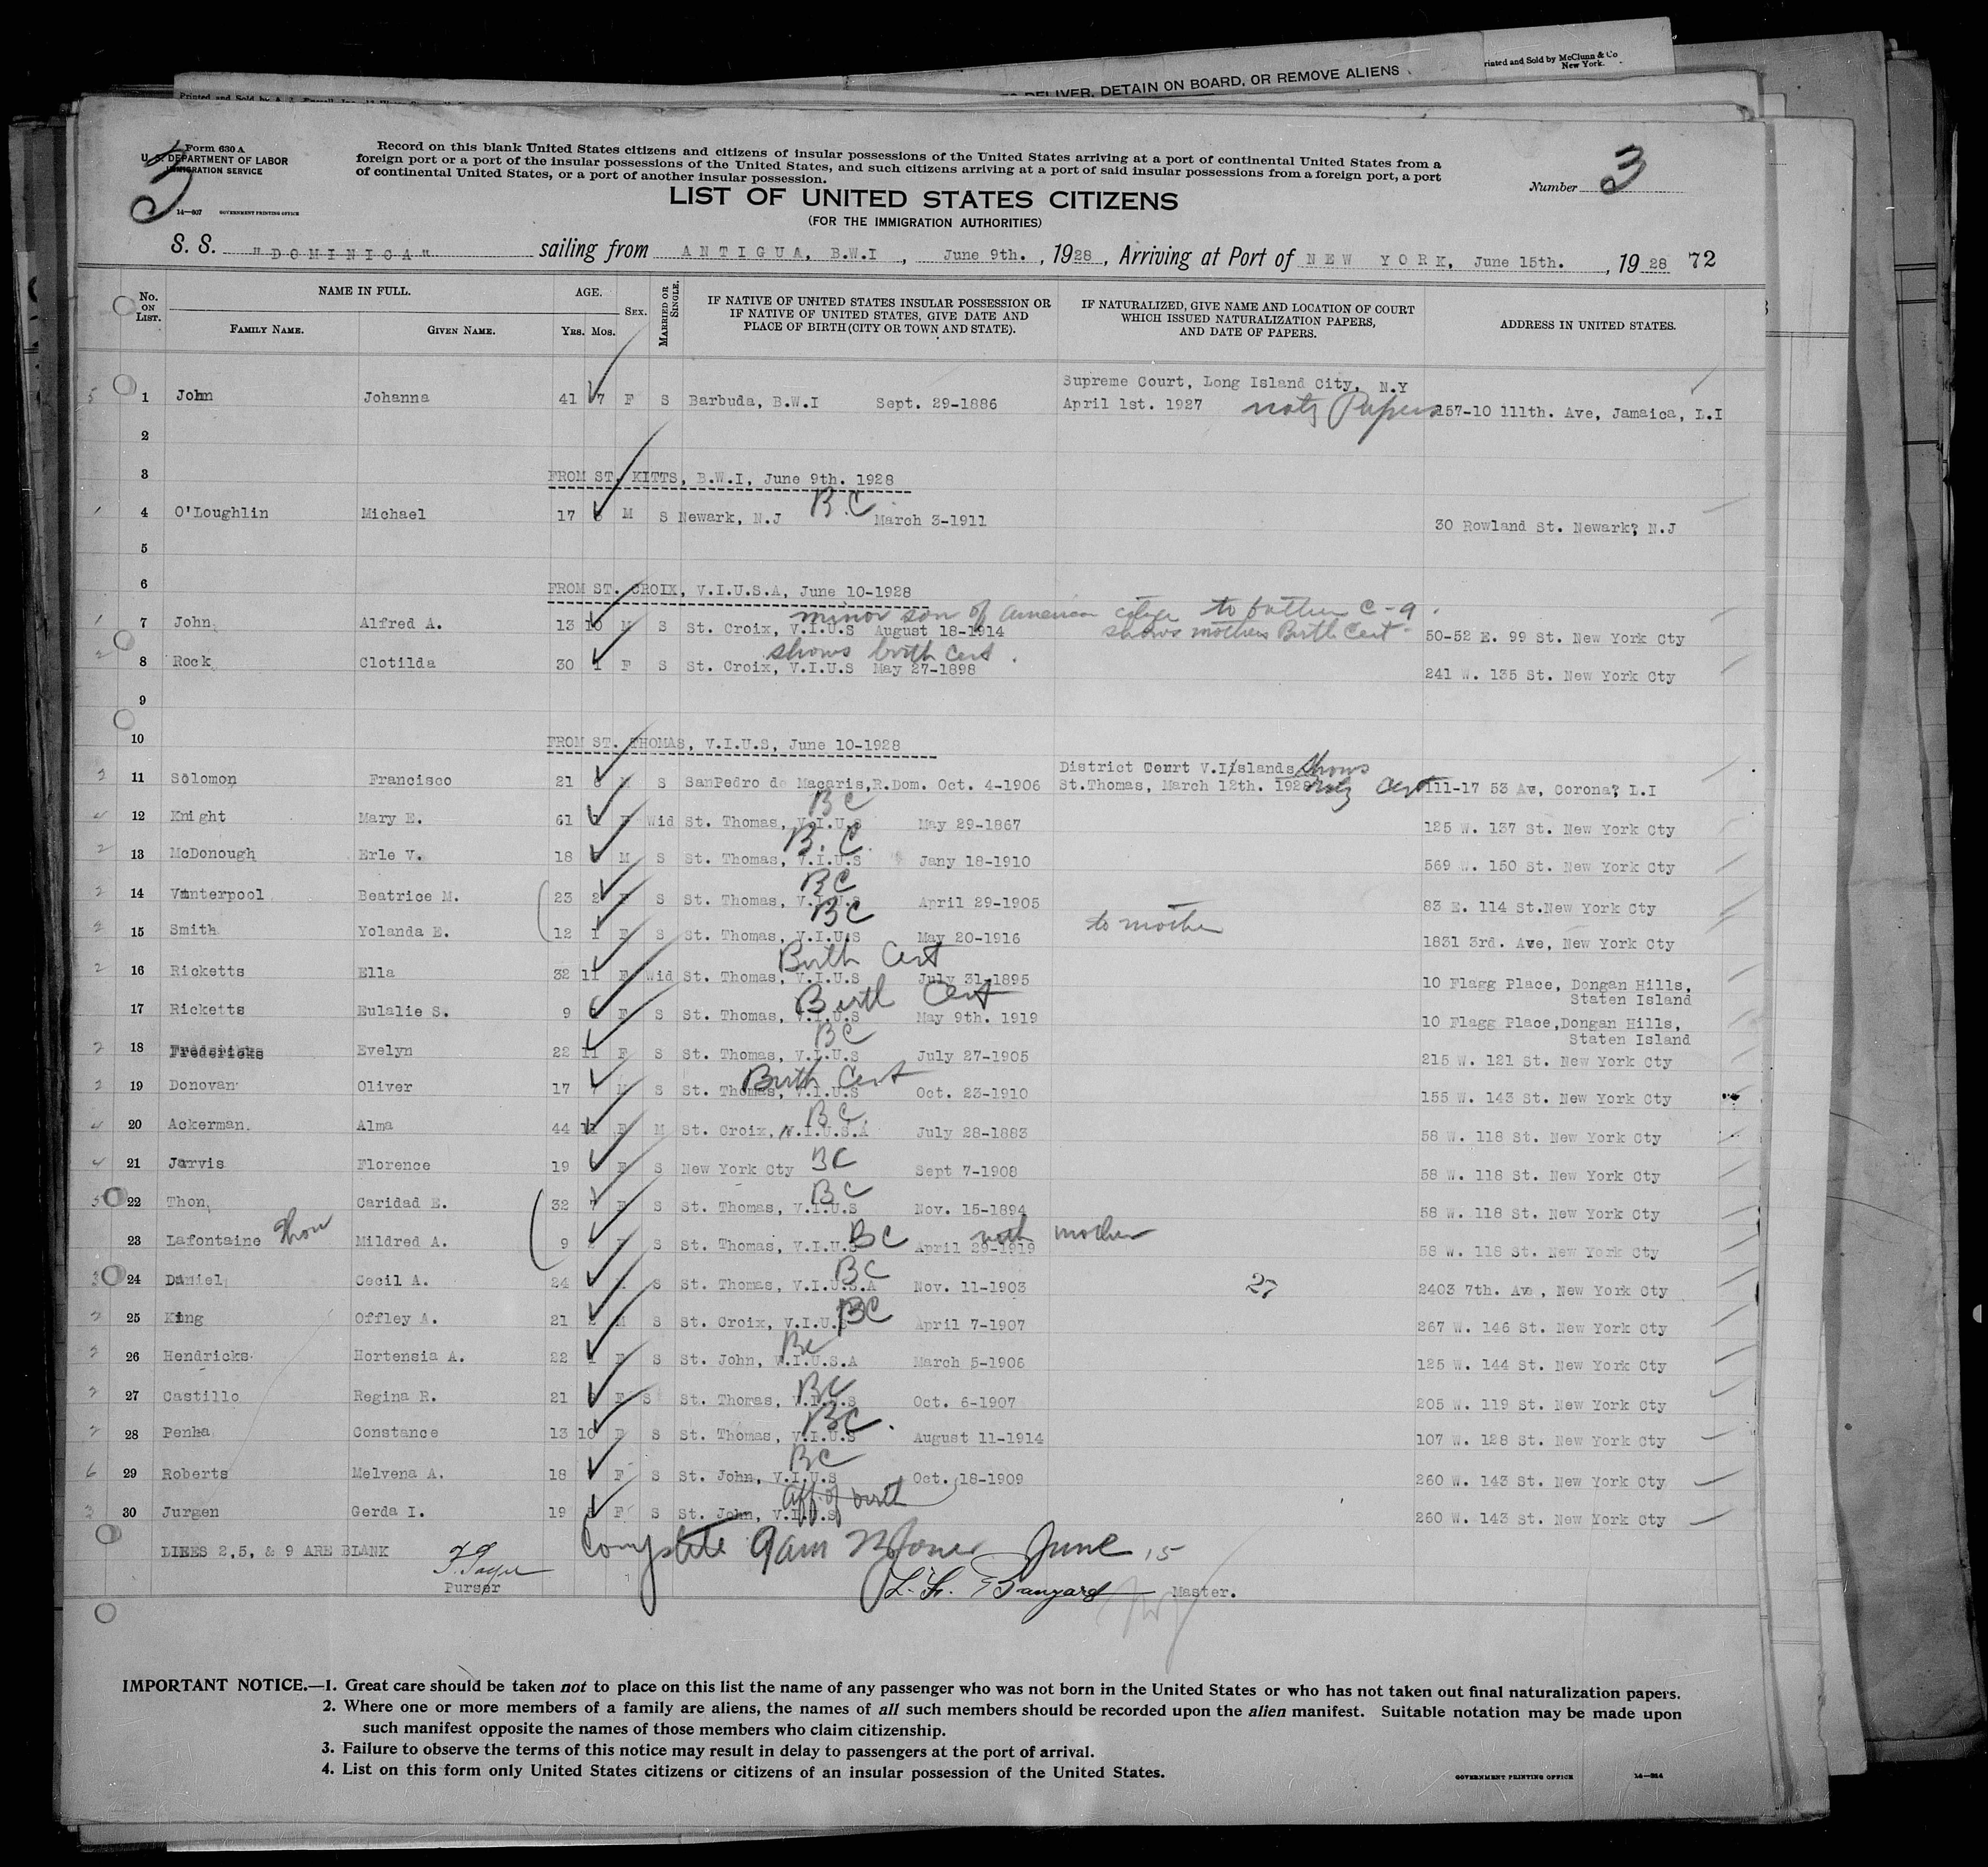 Printed and Sold by McClunn & Co
New York.
DELIVER, DETAIN ON BOARD, OR REMOVE ALIENS
Printed and Sold by
Form 630 A
U. S. DEPARTMENT OF LABOR
IMMIGRATION SERVICE
14-607 GOVERNMENT PRINTING OFFICE
3
Record on this blank United States citizens and citizens of insular possessions of the United States arriving at a port of continental United States from a
foreign port or a port of the insular possessions of the United States, and such citizens arriving at a port of said insular possessions from a foreign port, a port
of continental United States, or a port of another insular possession.
Number 3
LIST OF UNITED STATES CITIZENS
(FOR THE IMMIGRATION AUTHORITIES)
S. S. "DOMINICA" sailing from ANTIGUA, B.W.I, June 9th. , 1928, Arriving at Port of NEW YORK, June 15th. , 1928 72
No. ON LIST. NAME IN FULL. FAMILY NAME. GIVEN NAME. AGE. YRS. MOS. SEX. MARRIED OR SINGLE.
IF NATIVE OF UNITED STATES INSULAR POSSESSION OR
IF NATIVE OF UNITED STATES, GIVE DATE AND
PLACE OF BIRTH (CITY OR TOWN AND STATE).
IF NATURALIZED, GIVE NAME AND LOCATION OF COURT
WHICH ISSUED NATURALIZATION PAPERS,
AND DATE OF PAPERS.
ADDRESS IN UNITED STATES.
Supreme Court, Long Island City, N.Y
1 John Johanna 41 7 F S Barbuda, B.W.I Sept. 29-1886 April 1st. 1927 Papers 157-10 111th. Ave, Jamaica, L.I
2
3 FROM ST. KITTS, B.W.I, June 9th. 1928
B.C
4 O'Loughlin Michael 17 M S Newark, N.J March 3-1911 30 Rowland St. Newark, N.J
5
6 FROM ST. CROIX, V.I.U.S.A, June 10-1928
minor son of American to father C-9.
shows mothers Birth Cert
7 John Alfred A. 13 10 M S St. Croix, V.I.U.S August 18-1914 50-52 E. 99 St. New York Cty
shows birth Cert.
8 Rock Clotilda 30 1 F S St. Croix, V.I.U.S May 27-1898 241 W. 135 St. New York Cty
9
10 FROM ST. THOMAS, V.I.U.S, June 10-1928
District Court V.I/islands Shows
11 Solomon Francisco 21 8 M S SanPedro de Macaris,R.Dom. Oct. 4-1906 St.Thomas, March 12th. 1928 Cert 111-17 53 Av, Corona, L.I
BC
12 Knight Mary E. 61 F Wid St. Thomas, V.I.U.S May 29-1867 125 W. 137 St. New York Cty
B.C.
13 McDonough Erle V. 18 M S St. Thomas, V.I.U.S Jany 18-1910 569 W. 150 St. New York Cty
BC
14 Vanterpool Beatrice M. 23 2 F S St. Thomas, V.I.U.S April 29-1905 83 E. 114 St.New York Cty
BC
15 Smith Yolanda E. 12 1 F S St. Thomas, V.I.U.S May 20-1916 to mother 1831 3rd. Ave, New York Cty
Birth Cert
16 Ricketts Ella 32 11 F Wid St. Thomas, V.I.U.S July 31-1895 10 Flagg Place, Dongan Hills,
Staten Island
Birth Cert
17 Ricketts Eulalie S. 9 F S St. Thomas, V.I.U.S May 9th. 1919 10 Flagg Place,Dongan Hills,
Staten Island
BC
18 Fredericks Evelyn 22 11 F S St. Thomas, V.I.U.S July 27-1905 215 W. 121 St. New York Cty
Birth Cert
19 Donovan Oliver 17 7 M S St. Thomas, V.I.U.S Oct. 23-1910 155 W. 143 St. New York Cty
BC
20 Ackerman Alma 44 11 F M St. Croix, V.I.U.S.A July 28-1883 58 W. 118 St. New York Cty
21 Jarvis Florence 19 F S New York Cty BC Sept 7-1908 58 W. 118 St. New York Cty
BC
22 Thon Caridad E. 32 7 F S St. Thomas, V.I.U.S Nov. 15-1894 58 W. 118 St. New York Cty
23 Lafontaine Thon Mildred A. 9 F S St. Thomas, V.I.U.S BC April 29-1919 with mother 58 W. 118 St. New York Cty
BC
24 Daniel Cecil A. 24 S St. Thomas, V.I.U.S.A Nov. 11-1903 27 2403 7th. Ave, New York Cty
25 King Offley A. 21 2 M S St. Croix, V.I.U.S BC April 7-1907 267 W. 146 St. New York Cty
BC
26 Hendricks Hortensia A. 22 F S St. John, V.I.U.S.A March 5-1906 125 W. 144 St. New York Cty
BC
27 Castillo Regina R. 21 F S St. Thomas, V.I.U.S Oct. 6-1907 205 W. 119 St. New York Cty
BC.
28 Penha Constance 13 10 F S St. Thomas, V.I.U.S August 11-1914 107 W. 128 St. New York Cty
BC
29 Roberts Melvena A. 18 F S St. John, V.I.U.S Oct. 18-1909 260 W. 143 St. New York Cty
aff. of birth
30 Jurgen Gerda I. 19 F S St. John, V.I.U.S 260 W. 143 St. New York Cty
LINES 2,5, & 9 ARE BLANK
Complete 9am June 15
Purser
L. Fr. Banyard Master.
IMPORTANT NOTICE.—1. Great care should be taken not to place on this list the name of any passenger who was not born in the United States or who has not taken out final naturalization papers.
2. Where one or more members of a family are aliens, the names of all such members should be recorded upon the alien manifest. Suitable notation may be made upon
such manifest opposite the names of those members who claim citizenship.
3. Failure to observe the terms of this notice may result in delay to passengers at the port of arrival.
4. List on this form only United States citizens or citizens of an insular possession of the United States.
GOVERNMENT PRINTING OFFICE